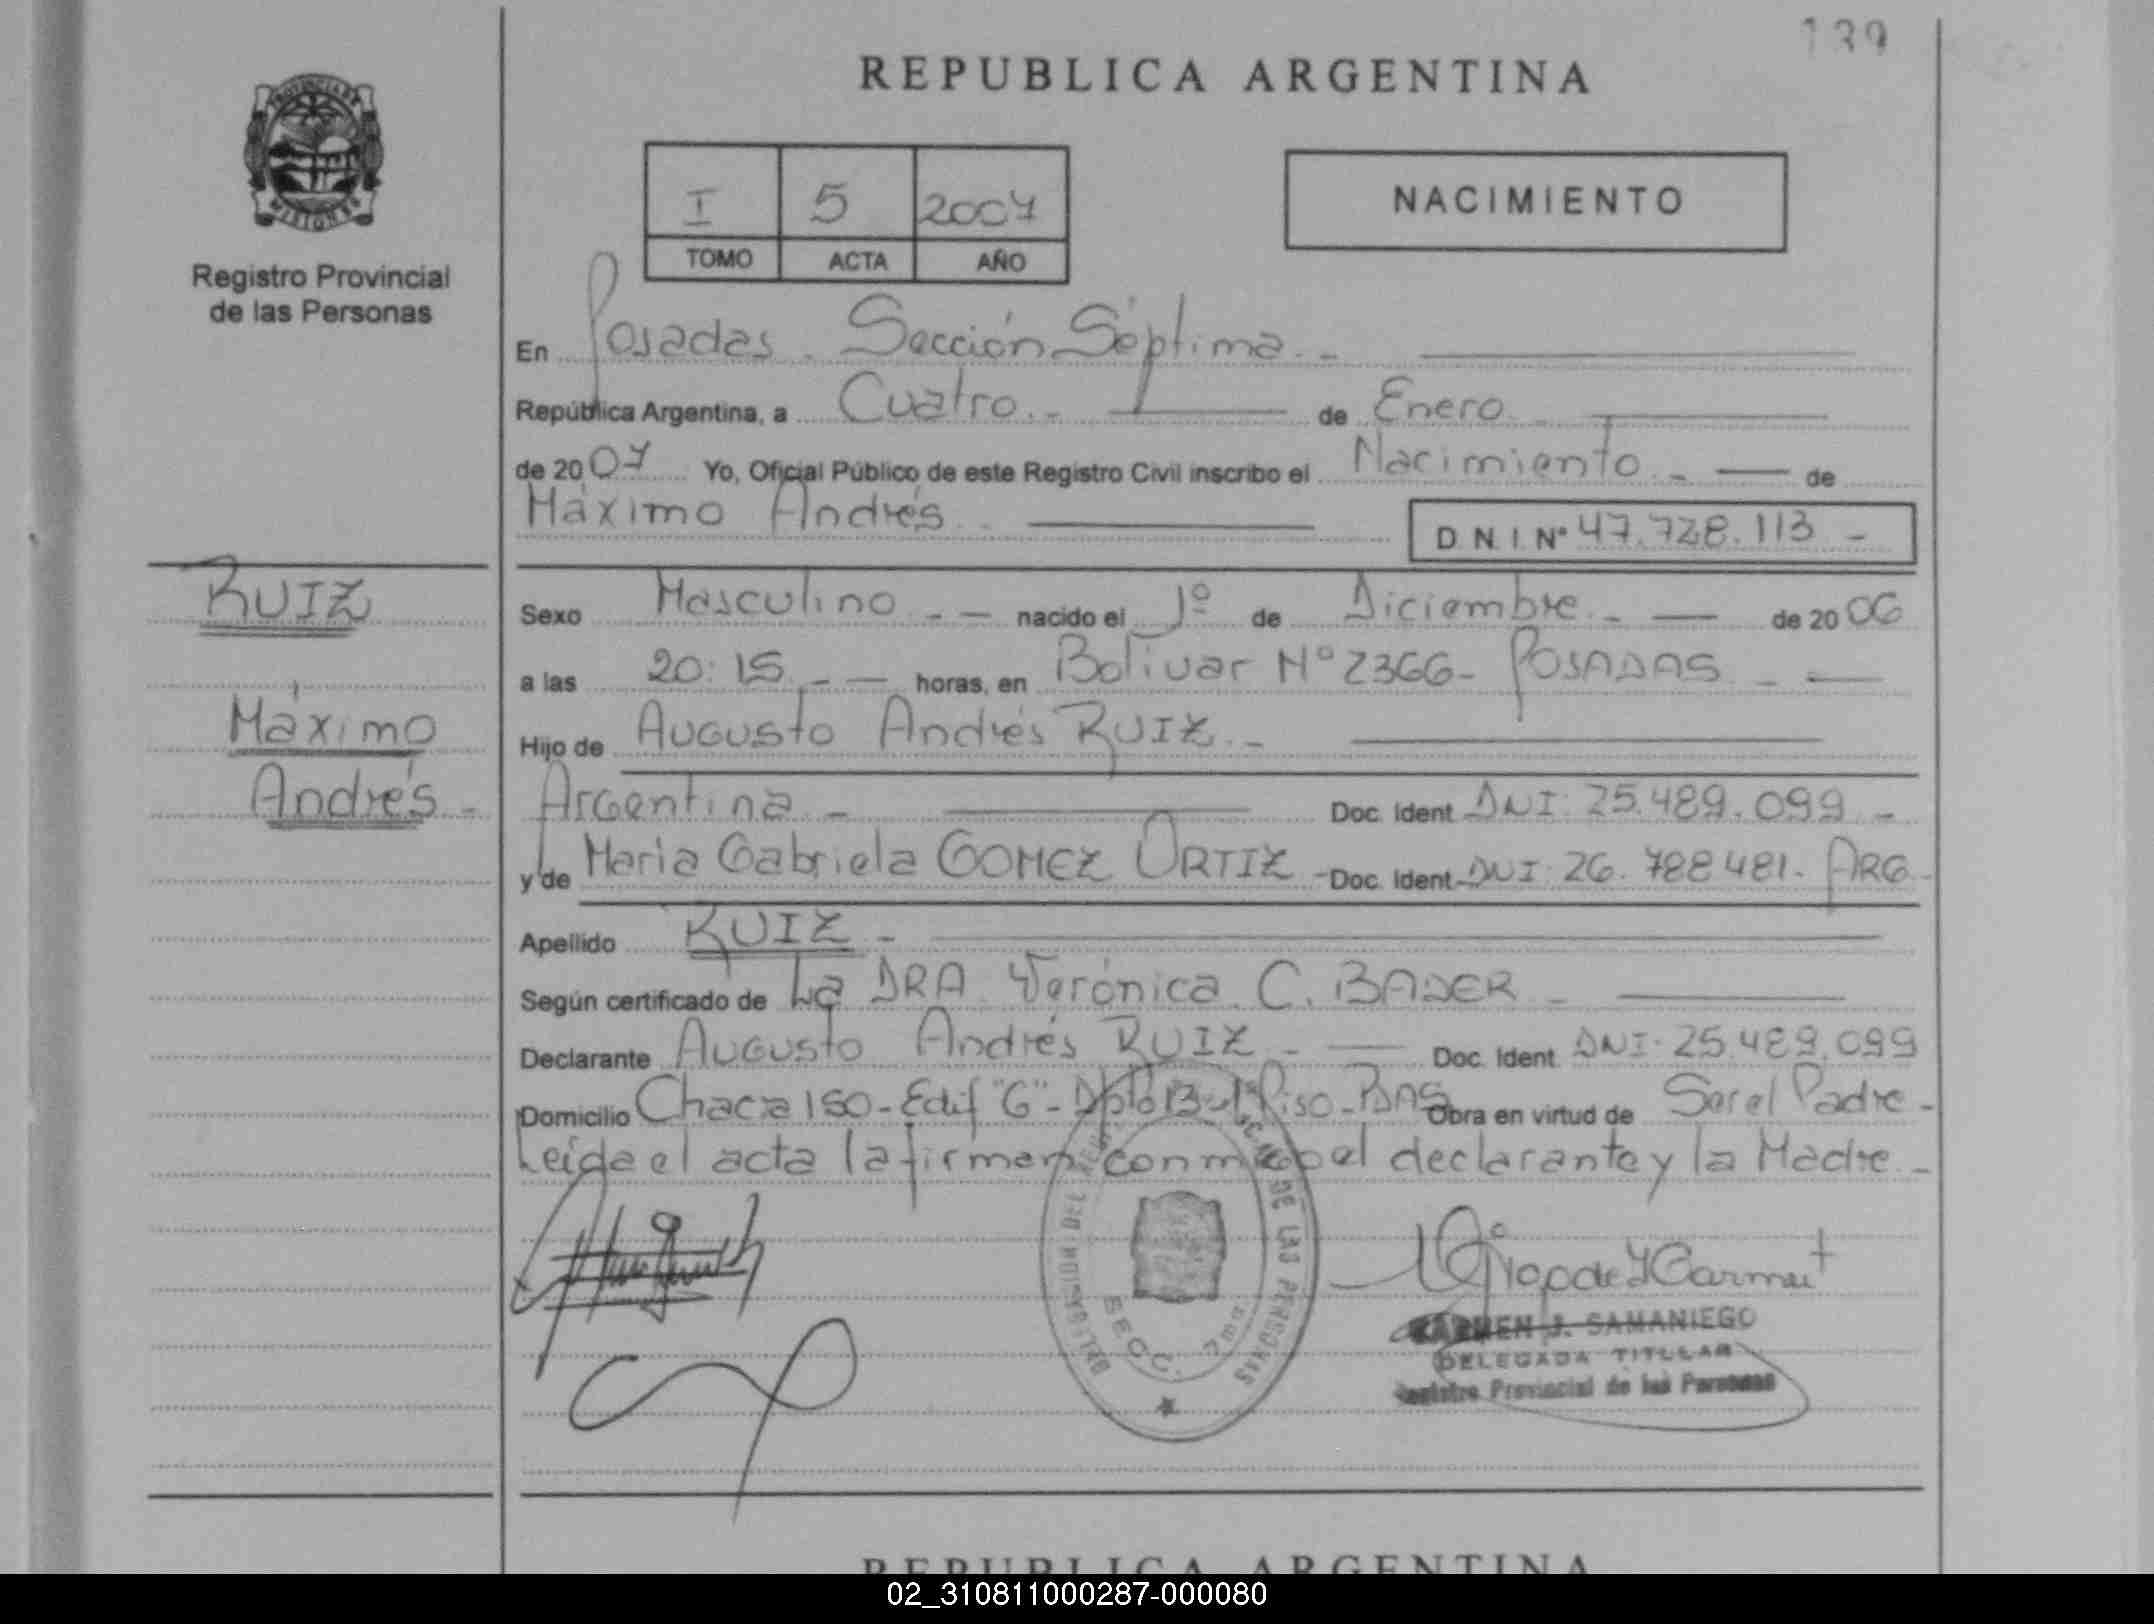 139
REPUBLICA ARGENTINA
PROVINCIA DE
MISIONES
Registro Provincial
de las Personas
I 5 2007
TOMO ACTA AÑO
NACIMIENTO
En Posadas. Sección Séptima. -
República Argentina, a Cuatro. - de Enero
de 2007 Yo, Oficial Público de este Registro Civil inscribo el Nacimiento - de
Máximo Andrés
D. N. I. Nº 47.728.113 -
RUIZ
Máximo
Andrés -
Sexo Masculino - - nacido el 1º de Diciembre - de 2006
a las 20:15 - - horas, en Bolivar Nº 2366 - POSADAS - -
Hijo de Augusto Andrés RUIZ. -
Argentina - Doc. Ident. DNI: 25.489.099 -
y de Maria Gabriela GOMEZ ORTIZ - Doc. Ident. DNI: 26.788481. ARG.
Apellido RUIZ -
Según certificado de La DRA. Verónica C. BADER -
Declarante Augusto Andrés RUIZ - Doc. Ident. DNI: 25.489.099
Domicilio Chacra 150 - Edif "G" - Dpto Piso - PDAS Obra en virtud de Ser el Padre -
Leida el acta la firman conmigo el declarante y la Madre -
DE LAS PERSONAS
SECC. 7ma
CARMEN J. SAMANIEGO
DELEGADA TITULAR
Registro Provincial de las Personas
REPUBLICA ARGENTINA
02_310811000287-000080